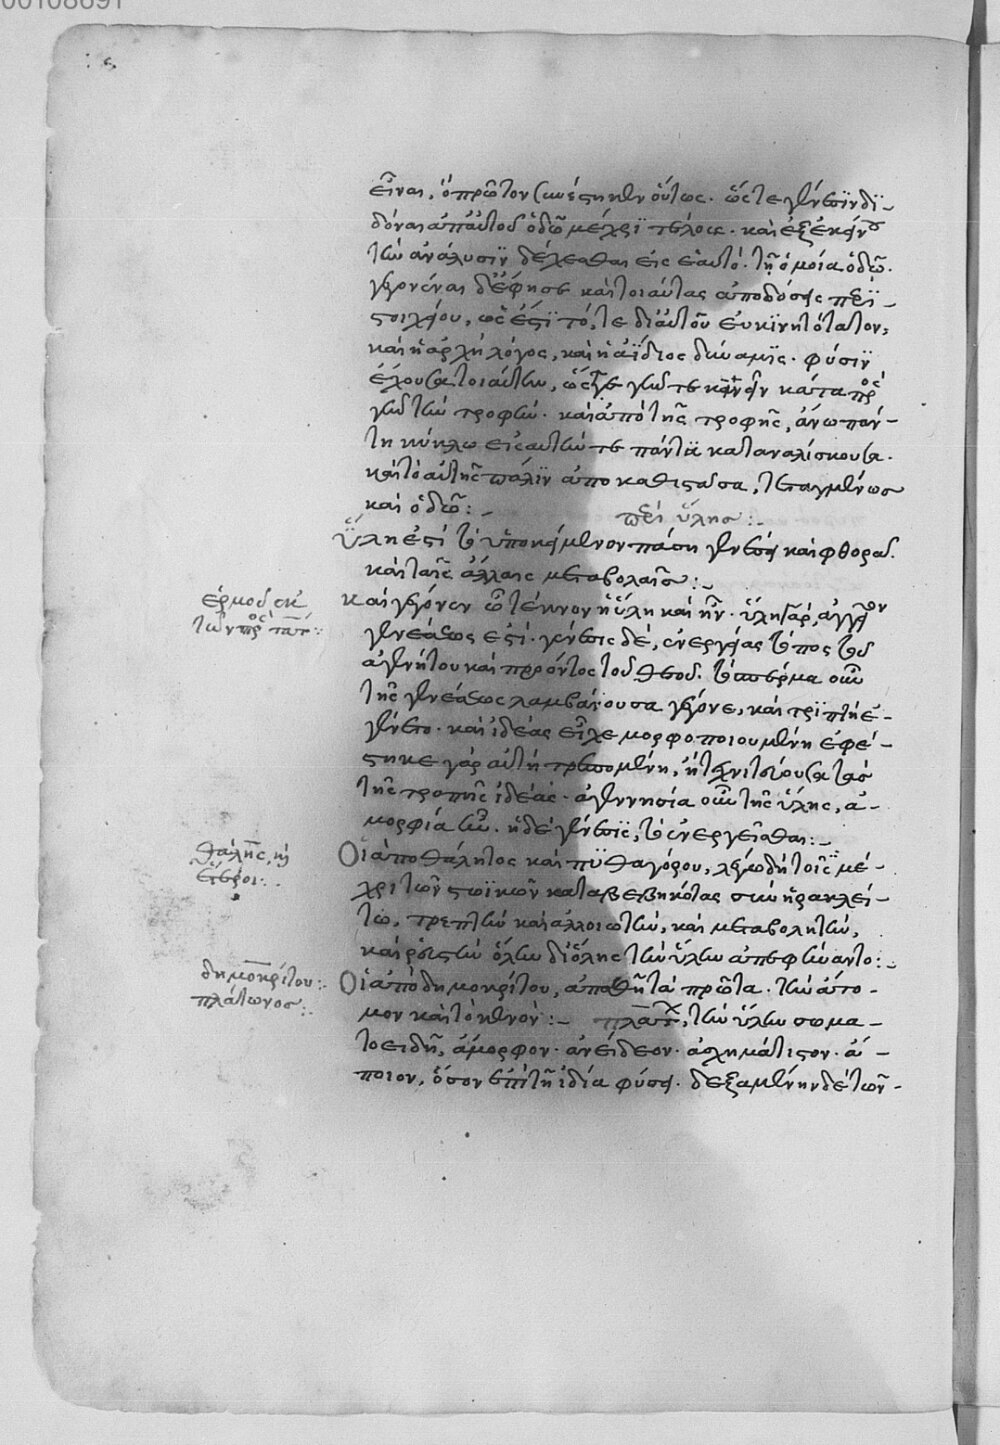 00108691
εἶναι, ὃ πρῶτον συνέστηκεν οὕτως. ὥςτε γένεσϊν δϊ-
δόναι ἀπ' αὐτοῦ ὁδῶ μέχρϊ τέλους. καὶ ἐξ ἐκείνου
τὴν ἀνάλυσϊν δέχεσθαι εἰς ἑαυτό. τῆ ὁμοία ὁδῶ.
γεγονέναι δ' ἔφησε καὶ τοιαύτας ἀποδόσεις περὶ
στοιχείου, ὡς ἔστϊ τό, τε δι' αὑτοῦ εὐκϊνητότατον,
καὶ ἡ ἀρχὴ λόγος, καὶ ἡ ἀΐδιος δύναμϊς. φύσϊν
ἔχουσα τοιαύτην, ὥςτε
τὴν τροφήν. καὶ ἀπὸ τῆς τροφῆς, ἄνω πάν-
τη κύκλω εἰς αὑτήν τε πάντα καταναλίσκουσα.
καὶ τὸ αὐτῆς πάλϊν ἀποκαθιστᾶσα, τεταγμένως
καὶ ὁδῶ:-
περὶ ὕλης:-
Ὕλη ἐστὶ τὸ ὑποκείμενον πάση γενέσει καὶ φθορᾶ.
καὶ ταῖς ἄλλαις μεταβολαῖς:-
ἑρμοῦ ἐκ
τῶν πρὸς τὰτ:
Καὶ γέγονεν ὦ τέκνον ἡ ὕλη καὶ ἦν. ὕλη γὰρ, ἀγγεῖον
γενέσεως ἐστί. γένεσις δέ, ἐνεργείας τόπος τοῦ
ἀγενήτου καὶ προόντος τοῦ θεοῦ. τὸ σπέρμα οὖν
τῆς γενέσεως λαμβάνουσα γέγονε, καὶ τρεπτὴ ἐ-
γένετο. καὶ ἰδέας εἶχε μορφοποιουμένη ἐφέ-
στηκε γὰρ αὐτῆ τρεπομένη, ἡ τεχνιτεύουσα τὰς
τῆς τροπῆς ἰδέας. ἀγεννησία οὖν τῆς ὕλης, ἀ-
μορφία ἦν. ἡ δὲ γένεσϊς, τὸ ἐνεργεῖσθαι:-
θαλῆς, καὶ
ἕτεροι:.
Οἱ ἀπὸ θάλητος καὶ πϋθαγόρου, λέγω δὴ τοῖς μέ-
χρι τῶν στωϊκῶν καταβεβηκότας σὺν ἡρακλεί-
τω, τρεπτὴν καὶ ἀλλοιωτήν, καὶ μεταβολητήν,
καὶ ῥευστὴν ὅλην δι' ὅλης τὴν ὕλην ἀπεφήναντο:-
δημοκρίτου:
πλάτωνος:.
Οἱ ἀπὸ δημοκρίτου, ἀπαθῆ τὰ πρῶτα. τὴν ἄτο-
μον καὶ τὸ κενόν:- πλάτων, τὴν ὕλην σωμα-
τοειδῆ, ἄμορφον. ἀνείδεον. ἀσχημάτιστον. ἄ-
ποιον, ὅσον ἐπὶ τῆ ἰδία φύσει. δεξαμένην δὲ τῶν-